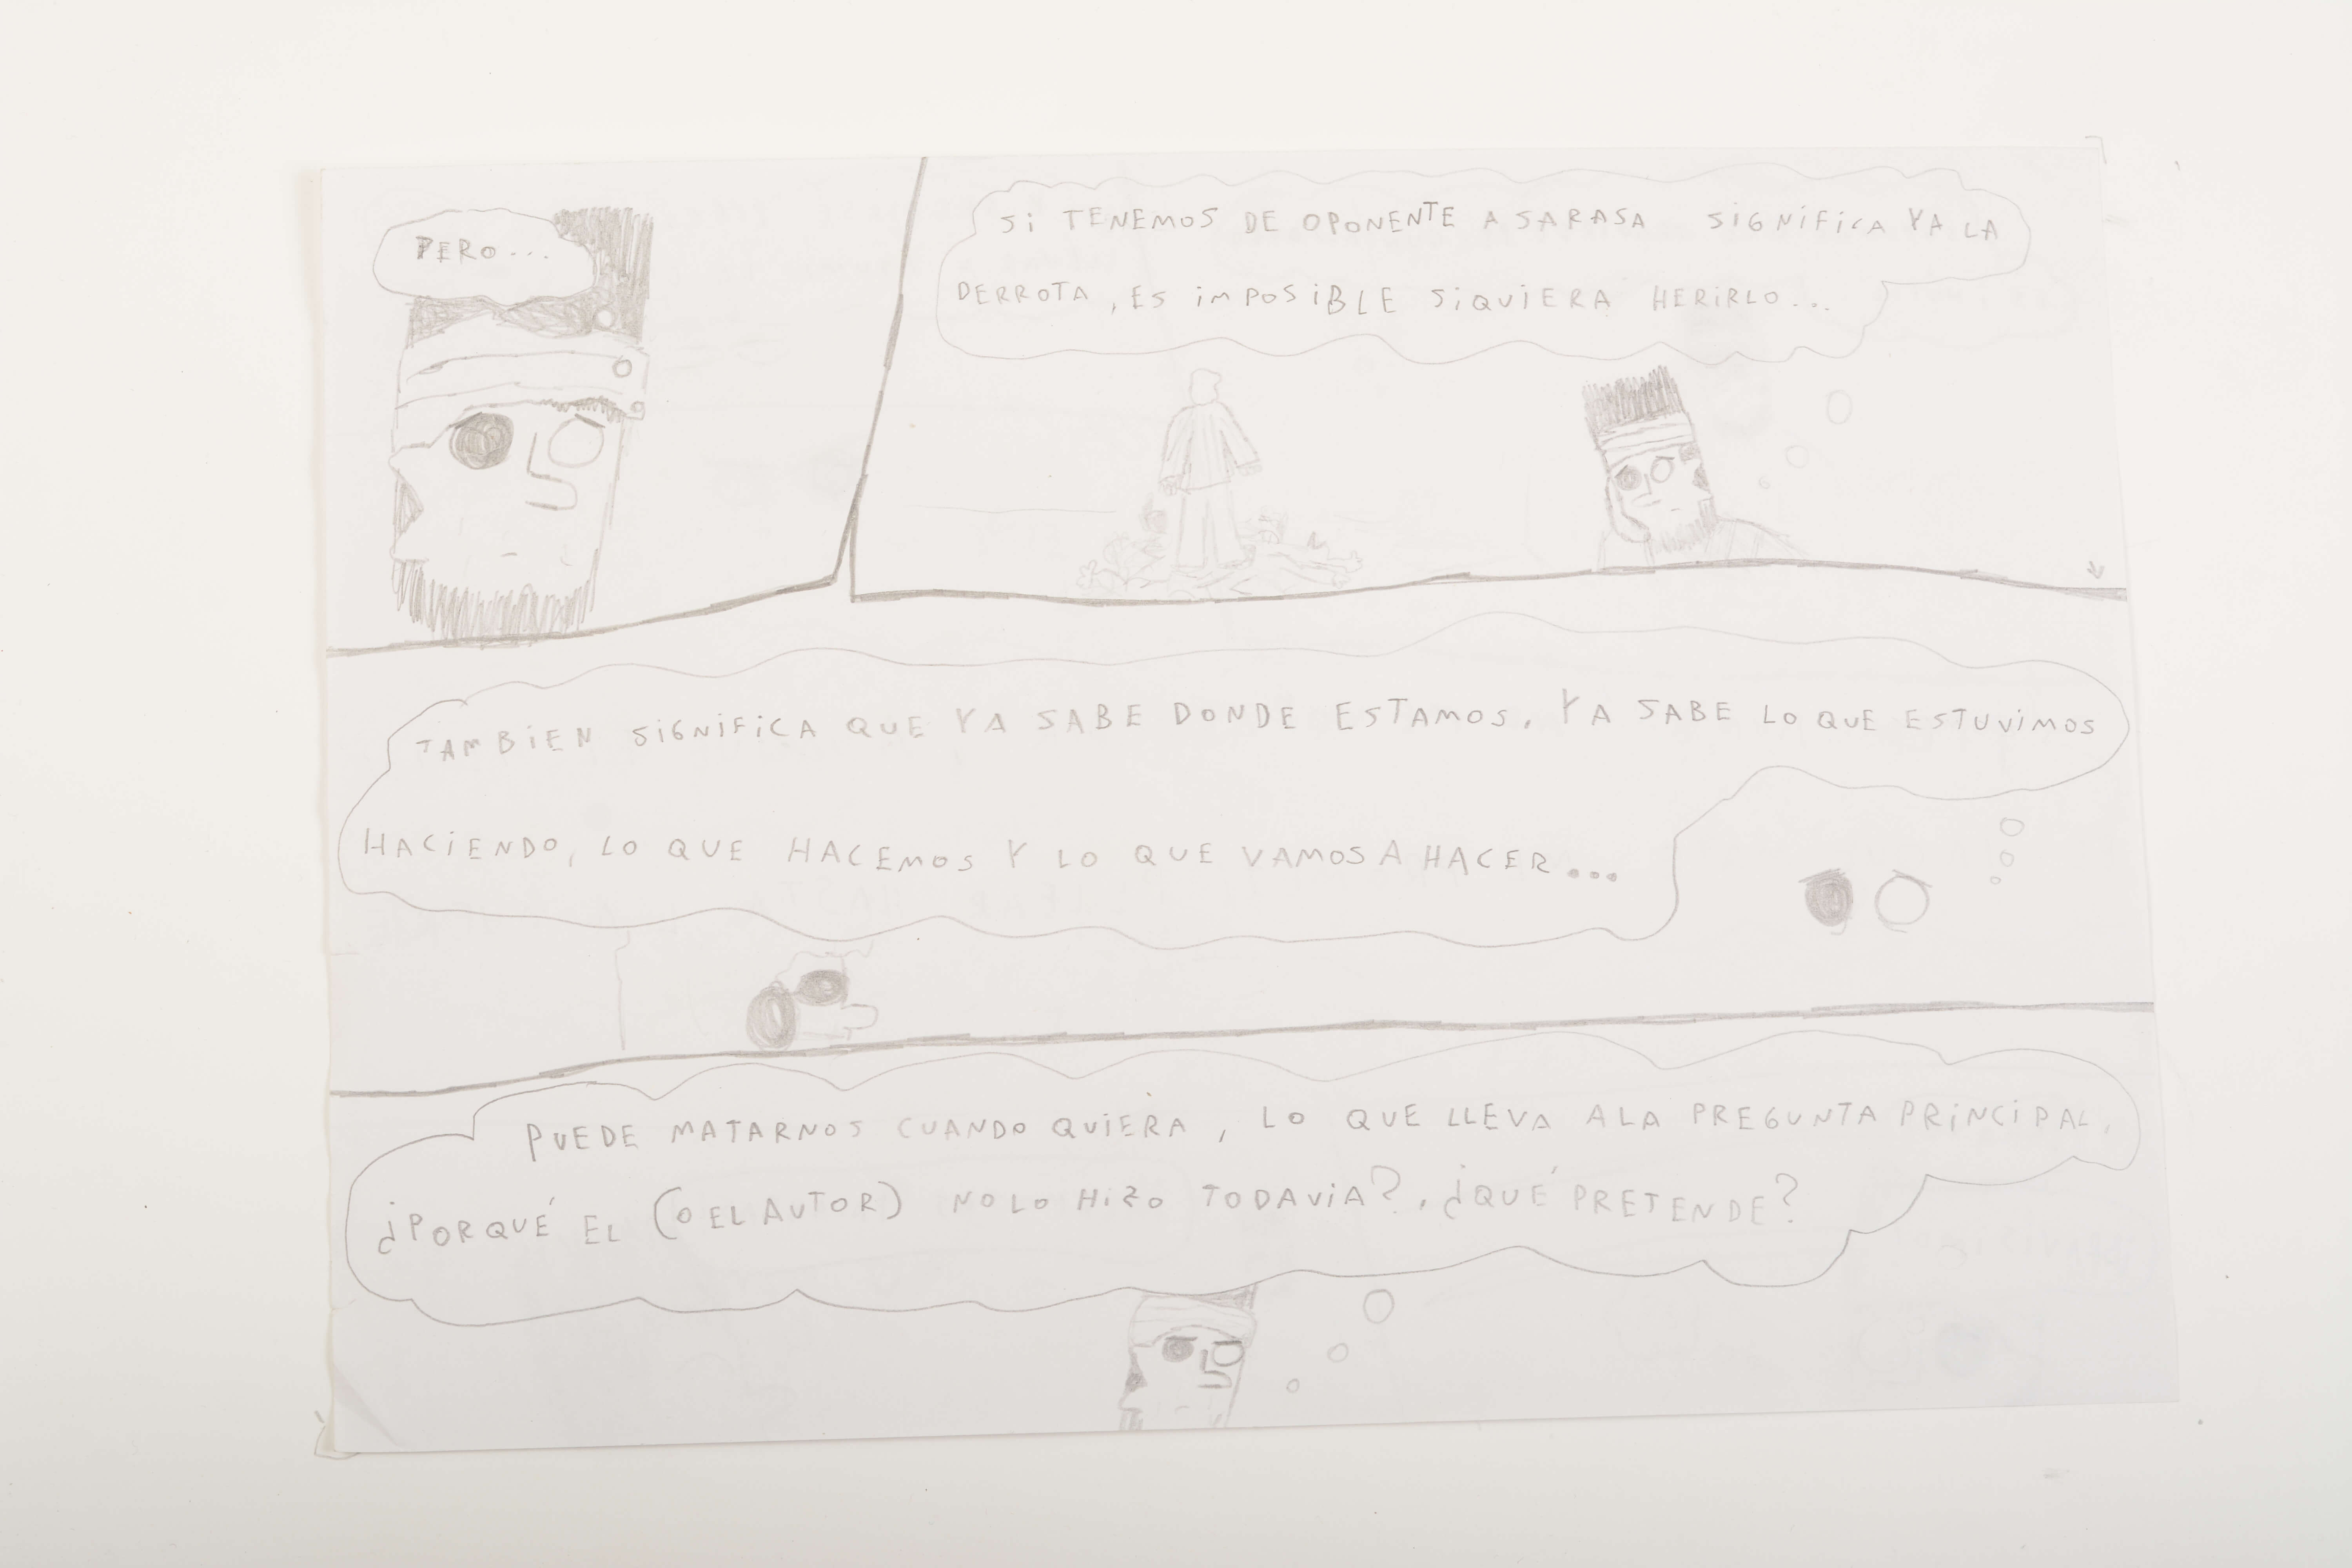 PERO...
Si TENEMOS DE OPONENTE A SARASA SiGNiFiCA YA LA
DERROTA, ES iMPOSiBLE SiQUiERA HERiRLO...
TAMBiEN SiGNiFiCA QUE YA SABE DONDE ESTAMOS. YA SABE LO QUE ESTUViMOS
HACiENDO, LO QUE HACEMOS Y LO QUE VAMOS A HACER...
PUEDE MATARNOS CUANDO QUiERA, LO QUE LLEVA A LA PREGUNTA PRiNCiPAL.
¿PORQUÉ EL (O EL AUTOR) NO LO HiZO TODAViA?. ¿QUÉ PRETENDE?